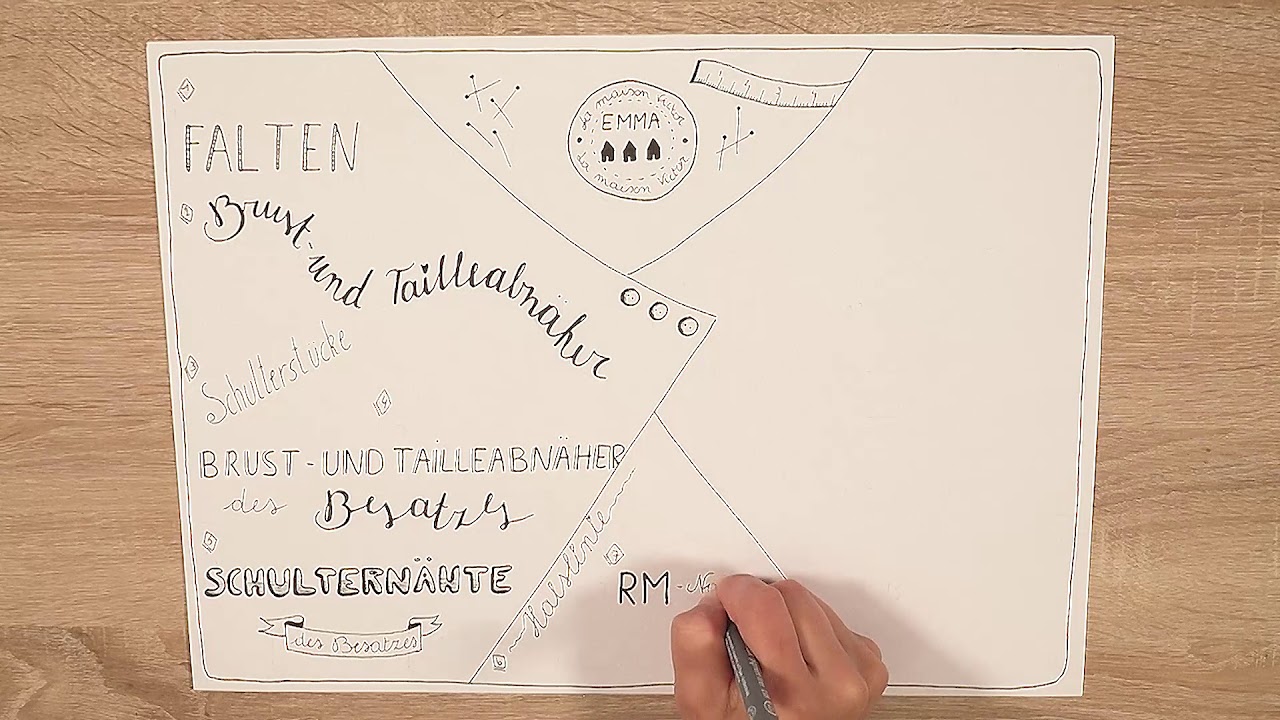 1
FALTEN
2
Brust-
und Tailleabnäher
3
Schulterstücke
4
BRUST-UND TAILLEABNÄHER
des Besatzes
5
SCHULTERNÄHTE
des Besatzes
la maison victor
EMMA
la maison victor
6
~Halslinie~
7
RM-N